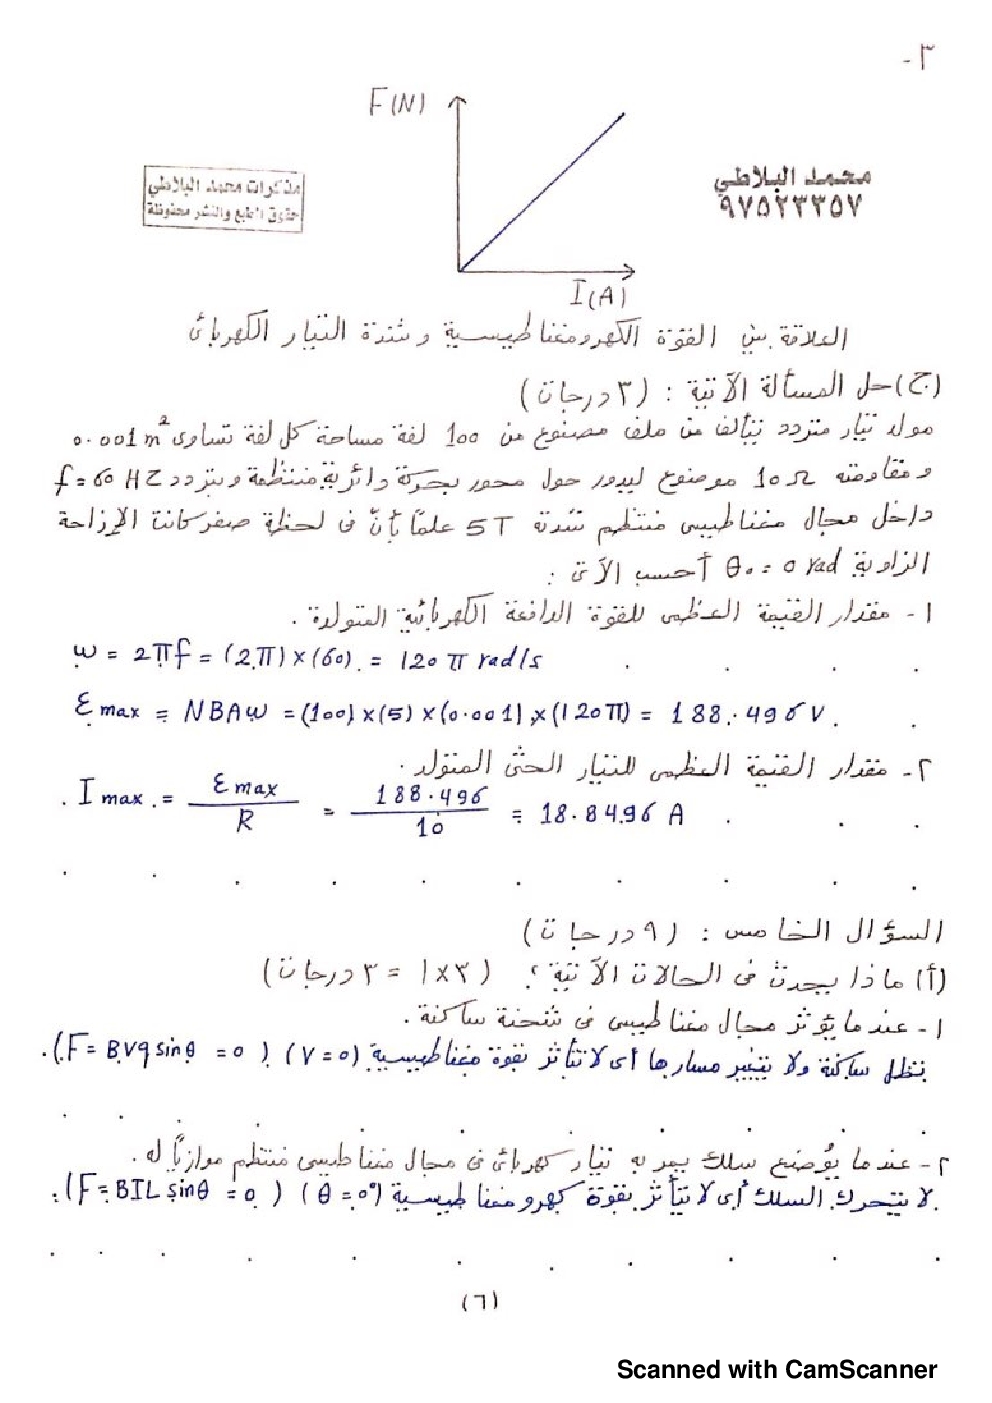 ٣-
F(N)
مذكرات محمد البلاطي
حقوق الطبع والنشر محفوظة
محمد البلاطي
٩٧٥٢٣٣٥٧
I(A)
العلاقة بين القوة الكهرومغناطيسية وشدة التيار الكهربائى
(ج) حل المسألة الآتية : (٣ درجات)
مولد تيار متردد يتألف من ملف مصنوع من 100 لفة مساحة كل لفة تساوى 0.001 m²
ومقاومته 10 Ω موضوع ليدور حول محور بحركة دائرية منتظمة وبتردد f = 60 HZ
داخل مجال مغناطيسى منتظم شدته 5T علمًا بأنّ فى لحظة صفر كانت الإزاحة
الزاوية θ₀ = 0 rad أحسب الآتى :
١- مقدار القيمة العظمى للقوة الدافعة الكهربائية المتولدة .
ω = 2πf = (2π) × (60) = 120 π rad/s
Ɛmax = NBAω = (100) × (5) × (0.001) × (120π) = 188.496 V
٢- مقدار القيمة العظمى للتيار الحثى المتولد .
I max = Ɛmax / R = 188.496 / 10 = 18.8496 A
السؤال الخامس : (٩ درجات)
(أ) ماذا يحدث فى الحالات الآتية ؟ (٣×١ = ٣ درجات)
١- عندما يؤثر مجال مغناطيسى فى شحنة ساكنة .
تظل ساكنة ولا يتغير مسارها أى لا تتأثر بقوة مغناطيسية (V = 0) (F = BVq sinθ = 0).
٢- عندما يُوضع سلك يمر به تيار كهربائى فى مجال مغناطيسى منتظم موازيًا له .
لا يتحرك السلك أى لا يتأثر بقوة كهرومغناطيسية (θ = 0°) (F = BIL sinθ = 0).
(٦)
Scanned with CamScanner